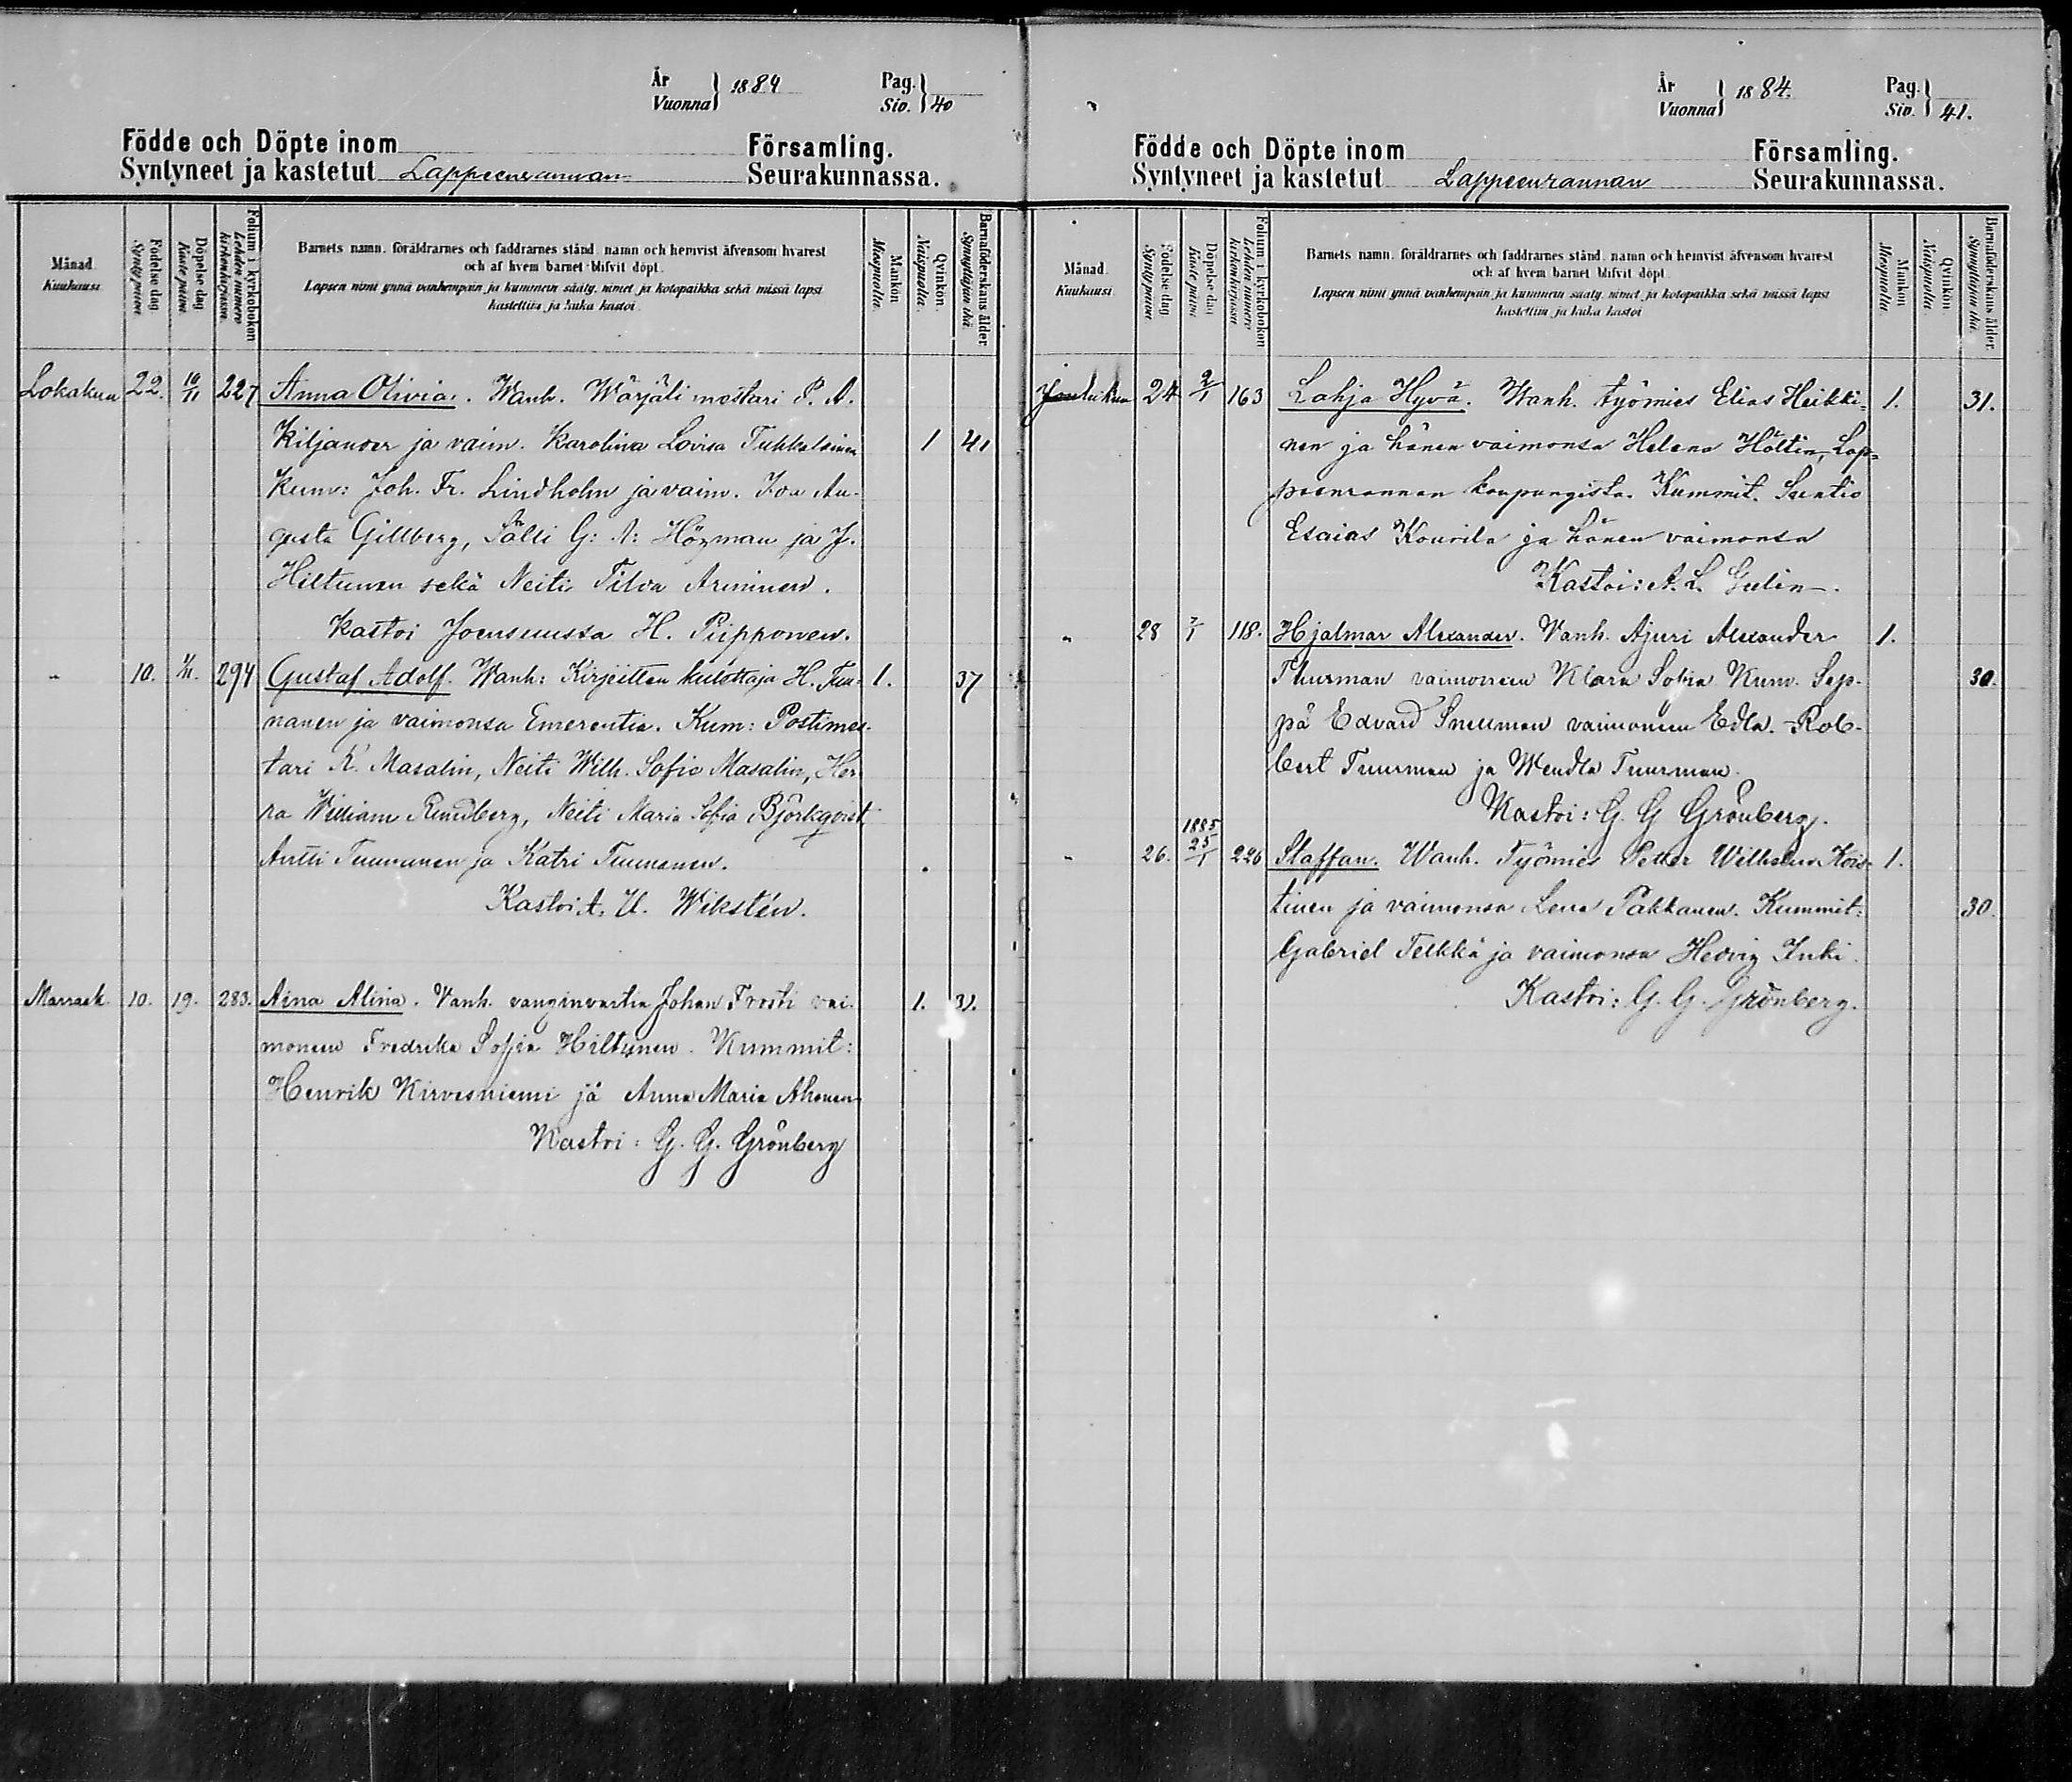 År Vuonna } 1884 Pag. Siv. } 40
Födde och Döpte inom Församling.
Syntyneet ja kastetut Lappeenrannan Seurakunnassa.
Månad Kuukausi
Födelse dag Syntypäivä
Döpelse dag Kastepäivä
Folium i kyrkobokon Lehden numero kirkonkirjassa
Barnets namn, föräldrarnes och faddrarnes stånd, namn och hemvist äfvensom hvarest
och af hvem barnet blifvit döpt.
Lapsen nimi ynnä vanhempain ja kummein sääty, nimet ja kotopaikka sekä missä lapsi
kastettiin ja kuka kastoi
Mankön Miespuolia.
Qvinkön. Naispuolia.
Barnaföderskans ålder Synnyttäjän ikä.
Lokakuu 22. 10/11 227 Anna Olivia. Wanh. Wärjäli mestari P. A.
Kiljander ja vaim. Karolina Lovisa Tukkalainen 1 41
Kum: Joh. Fr. Lindholm ja vaim. Ida Au-
gusta Gillberg, Sälli G. A: Högman ja J.
Hiltunen sekä Neiti Tilda Arminen.
Kastoi Joensuussa H. Piipponen.
" 10. 1/11. 294 Gustaf Adolf. Wanh: Kirjeitten kulettaja H. Tuu- 1. 37
nanen ja vaimonsa Emerentia. Kum: Postimes-
tari K. Masalin, Neiti Wilh. Sofie Masalin, Her-
ra William Rundberg, Neiti Maria Sofia Björkqvist,
Antti Tuunanen ja Katri Tuunanen.
Kastoi A. U. Wikstén.
Marrask. 10. 19. 283. Aina Alina. Vanh. vanginvartia Johan Frosti vai- 1. 31.
moneen Fredrika Sofia Hiltunen. Kummit:
Henrik Kirvesniemi ja Anna Maria Ahonen
Kastoi: G. G. Grönberg
År Vuonna } 1884. Pag. Siv. } 41.
Födde och Döpte inom Församling.
Syntyneet ja kastetut Lappeenrannan Seurakunnassa.
Månad Kuukausi
Födelse dag Syntypäivä
Döpelse dag Kastepäivä
Folium i kyrkobokon Lehden numero kirkonkirjassa
Barnets namn, föräldrarnes och faddrarnes stånd, namn och hemvist äfvensom hvarest
och af hvem barnet blifvit döpt.
Lapsen nimi ynnä vanhempain ja kummein sääty, nimet ja kotopaikka sekä missä lapsi
kastettiin ja kuka kastoi
Mankön Miespuolia.
Qvinkön Naispuolia.
Barnaföderskans ålder. Synnyttäjän ikä.
Joulukuu 24 2/1 163 Lahja Hyvä. Wanh. työmies Elias Heikki- 1. 31.
nen ja hänen vaimonsa Helena Höltin, Lap-
peenrannan kaupungista. Kummit. Suntio
Esaias Kouvila ja hänen vaimonsa
Kastoi: A. L. Gulin.
" 28 7/1 118. Hjalmar Alexander. Vanh. Ajuri Alexander 1.
Thurman vaimoneen Klara Sofia. Kum. Sep- 30.
pä Edvard Snellman vaimoneen Edla. Rob-
bert Tuurman ja Wendla Tuurman.
Kastoi: G. G Grönberg.
" 26. 1885 25/1 226 Staffan. Wanh. Työmies Petter Wilhelm Kois- 1.
tinen ja vaimonsa Lena Pakkanen. Kummit: 30.
Gabriel Telkkä ja vaimonsa Hedvig Inki.
Kastoi: G. G. Grönberg.